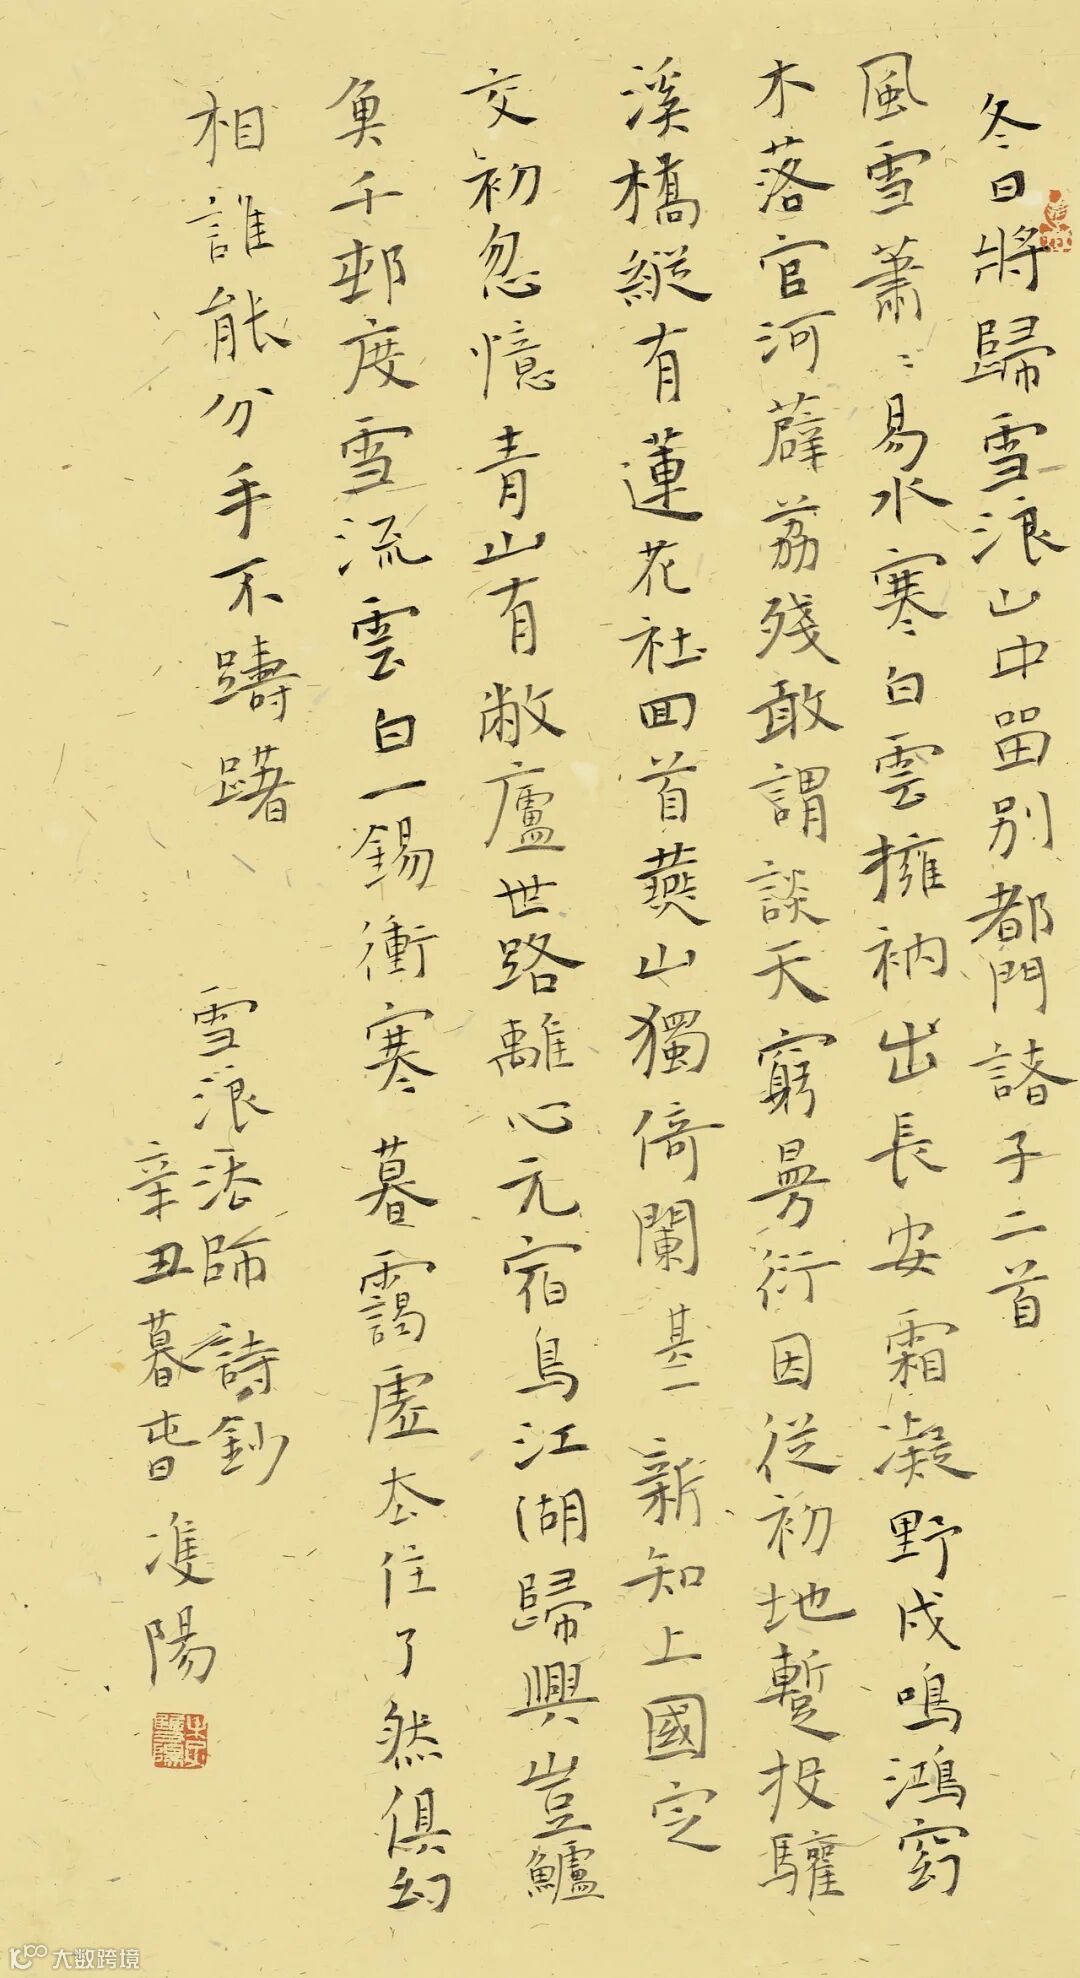 冬日將歸雪浪山中畱别都門諸子二首
風雪蕭〻易水寒白雲擁衲出長安霜凝野戍鳴鴻窈
木落官河薜荔殘敢謂談天窮曼衍因從初地暫投驩
溪橋縱有蓮花社回首燕山獨倚闌 其一 新知上國定
交初忽憶青山有敝廬世路離心元宿鳥江湖歸興豈鱸
魚千邨度雪流雲白一錫衝寒暮靄虛去住了然俱幻
相誰能分手不躊躇
雪浪法師詩鈔
辛丑暮春 隻陽
大数跨境